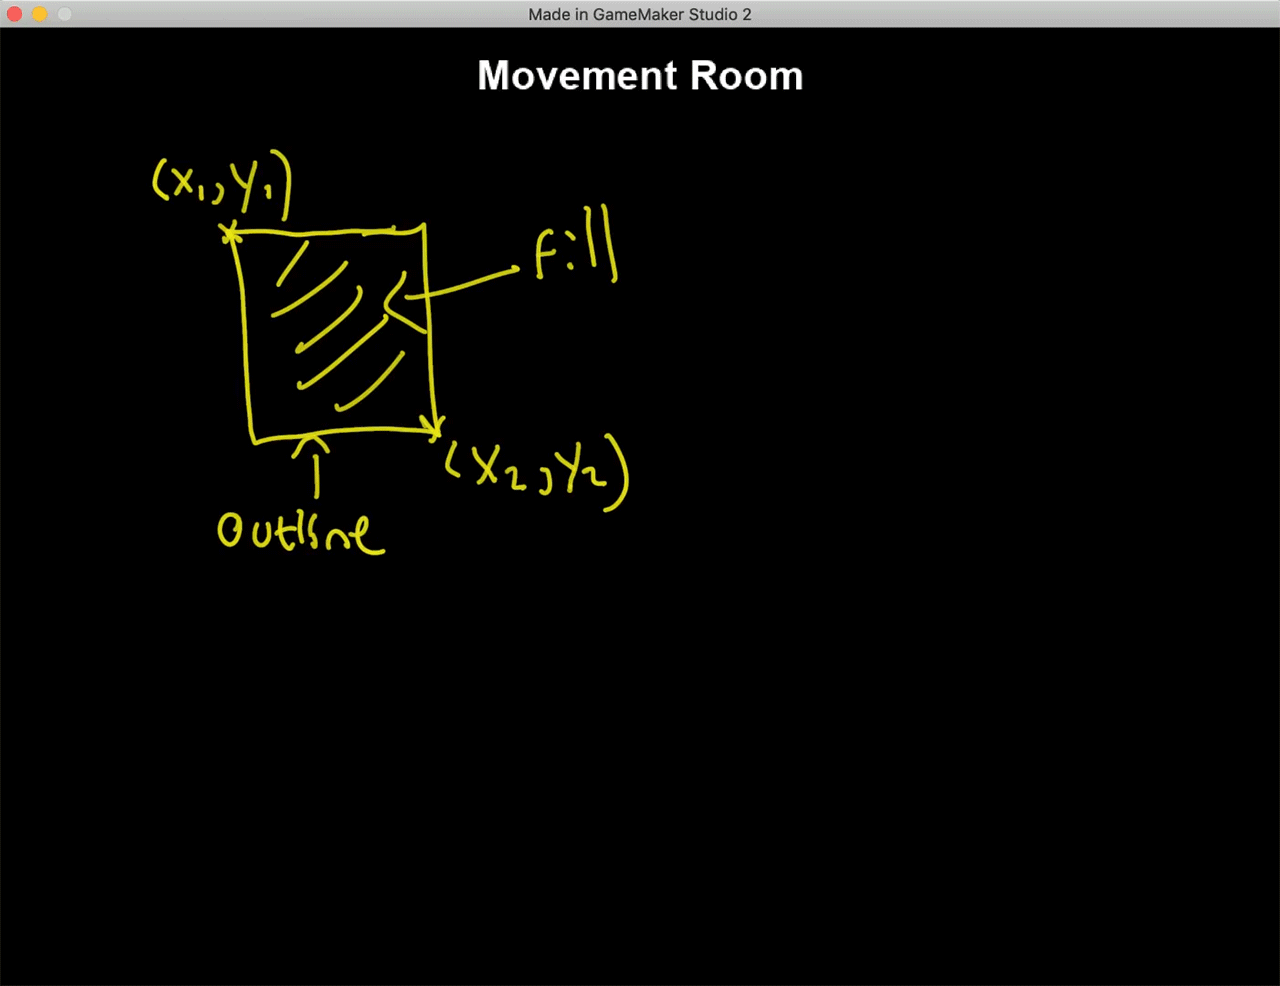 Made in GameMaker Studio 2
Movement Room
(x₁,y₁)
Fill
(x₂,y₂)
Outline